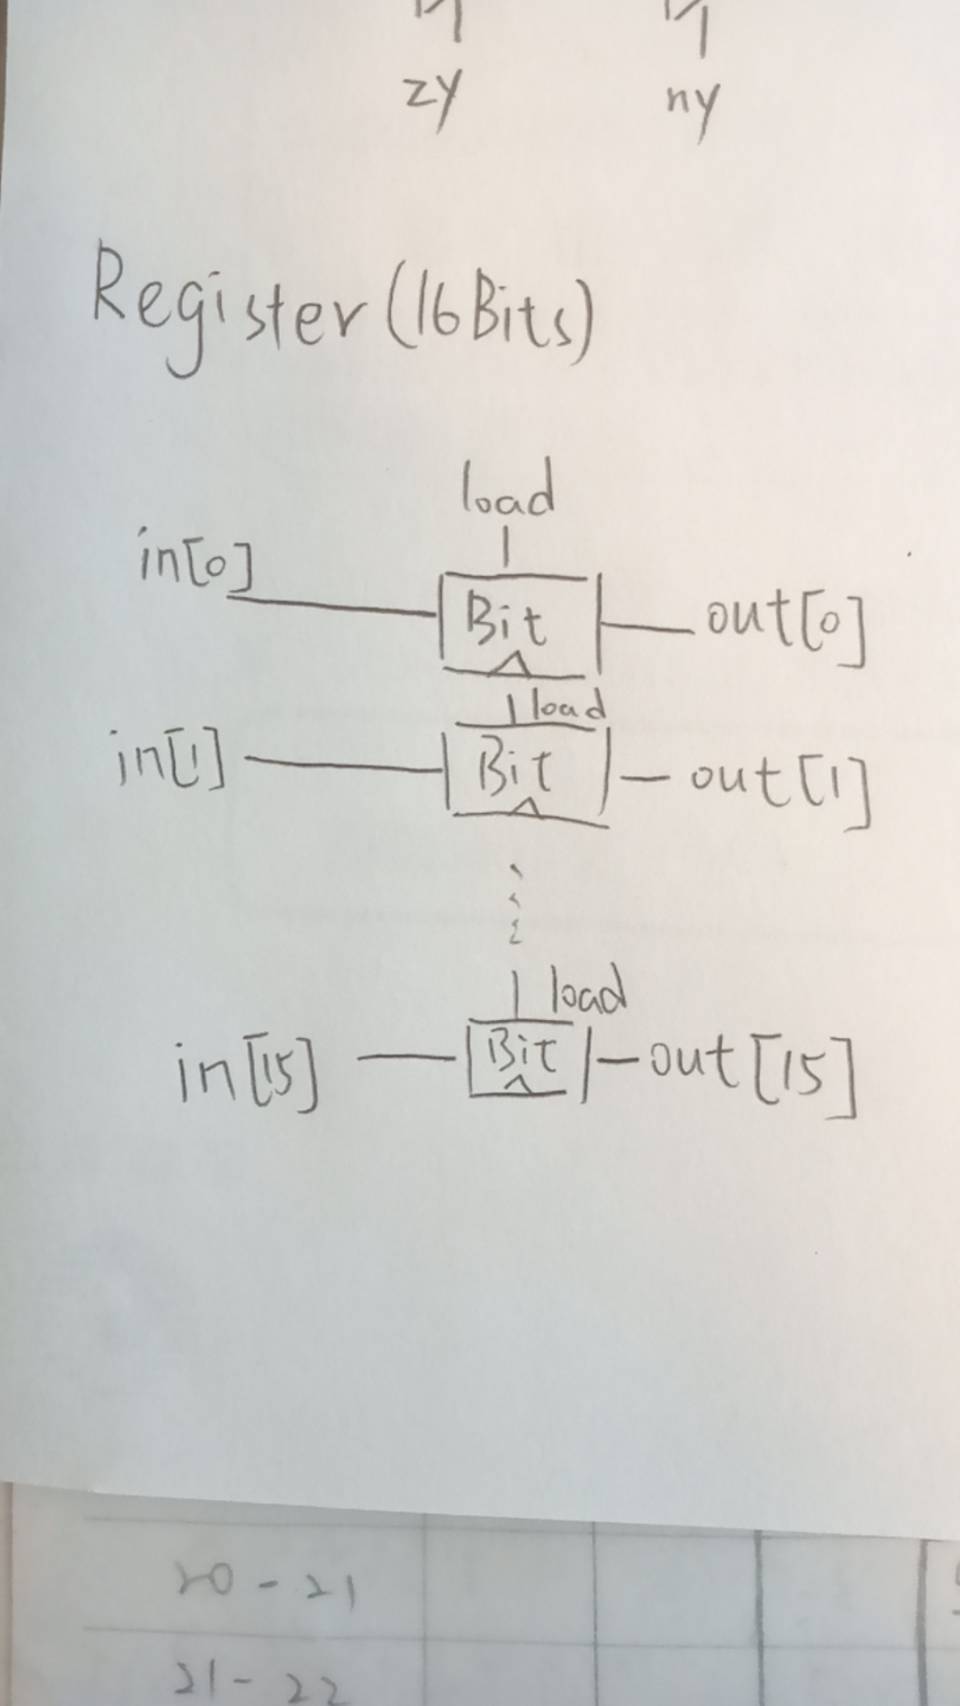 zy ny
Register (16Bits)
load
in[0] Bit out[0]
load
in[1] Bit out[1]
load
in[15] Bit out[15]
20 - 21
21 - 22